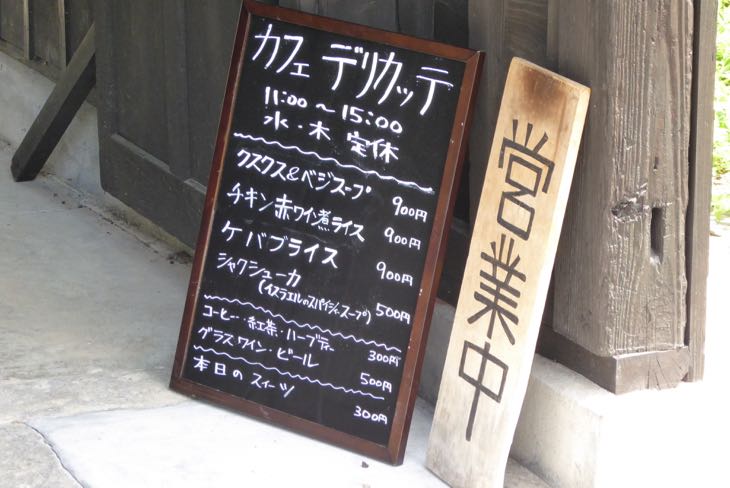 カフェ デリカッテ
11:00～15:00
水・木 定休
クスクス&ベジスープ 900円
チキン赤ワイン煮ライス 900円
ケバブライス 900円
シャクシューカ 500円
(イスラエルのスパイシースープ)
コーヒー・紅茶・ハーブティー 300円
グラスワイン・ビール 500円
本日のスィーツ 300円
営業中